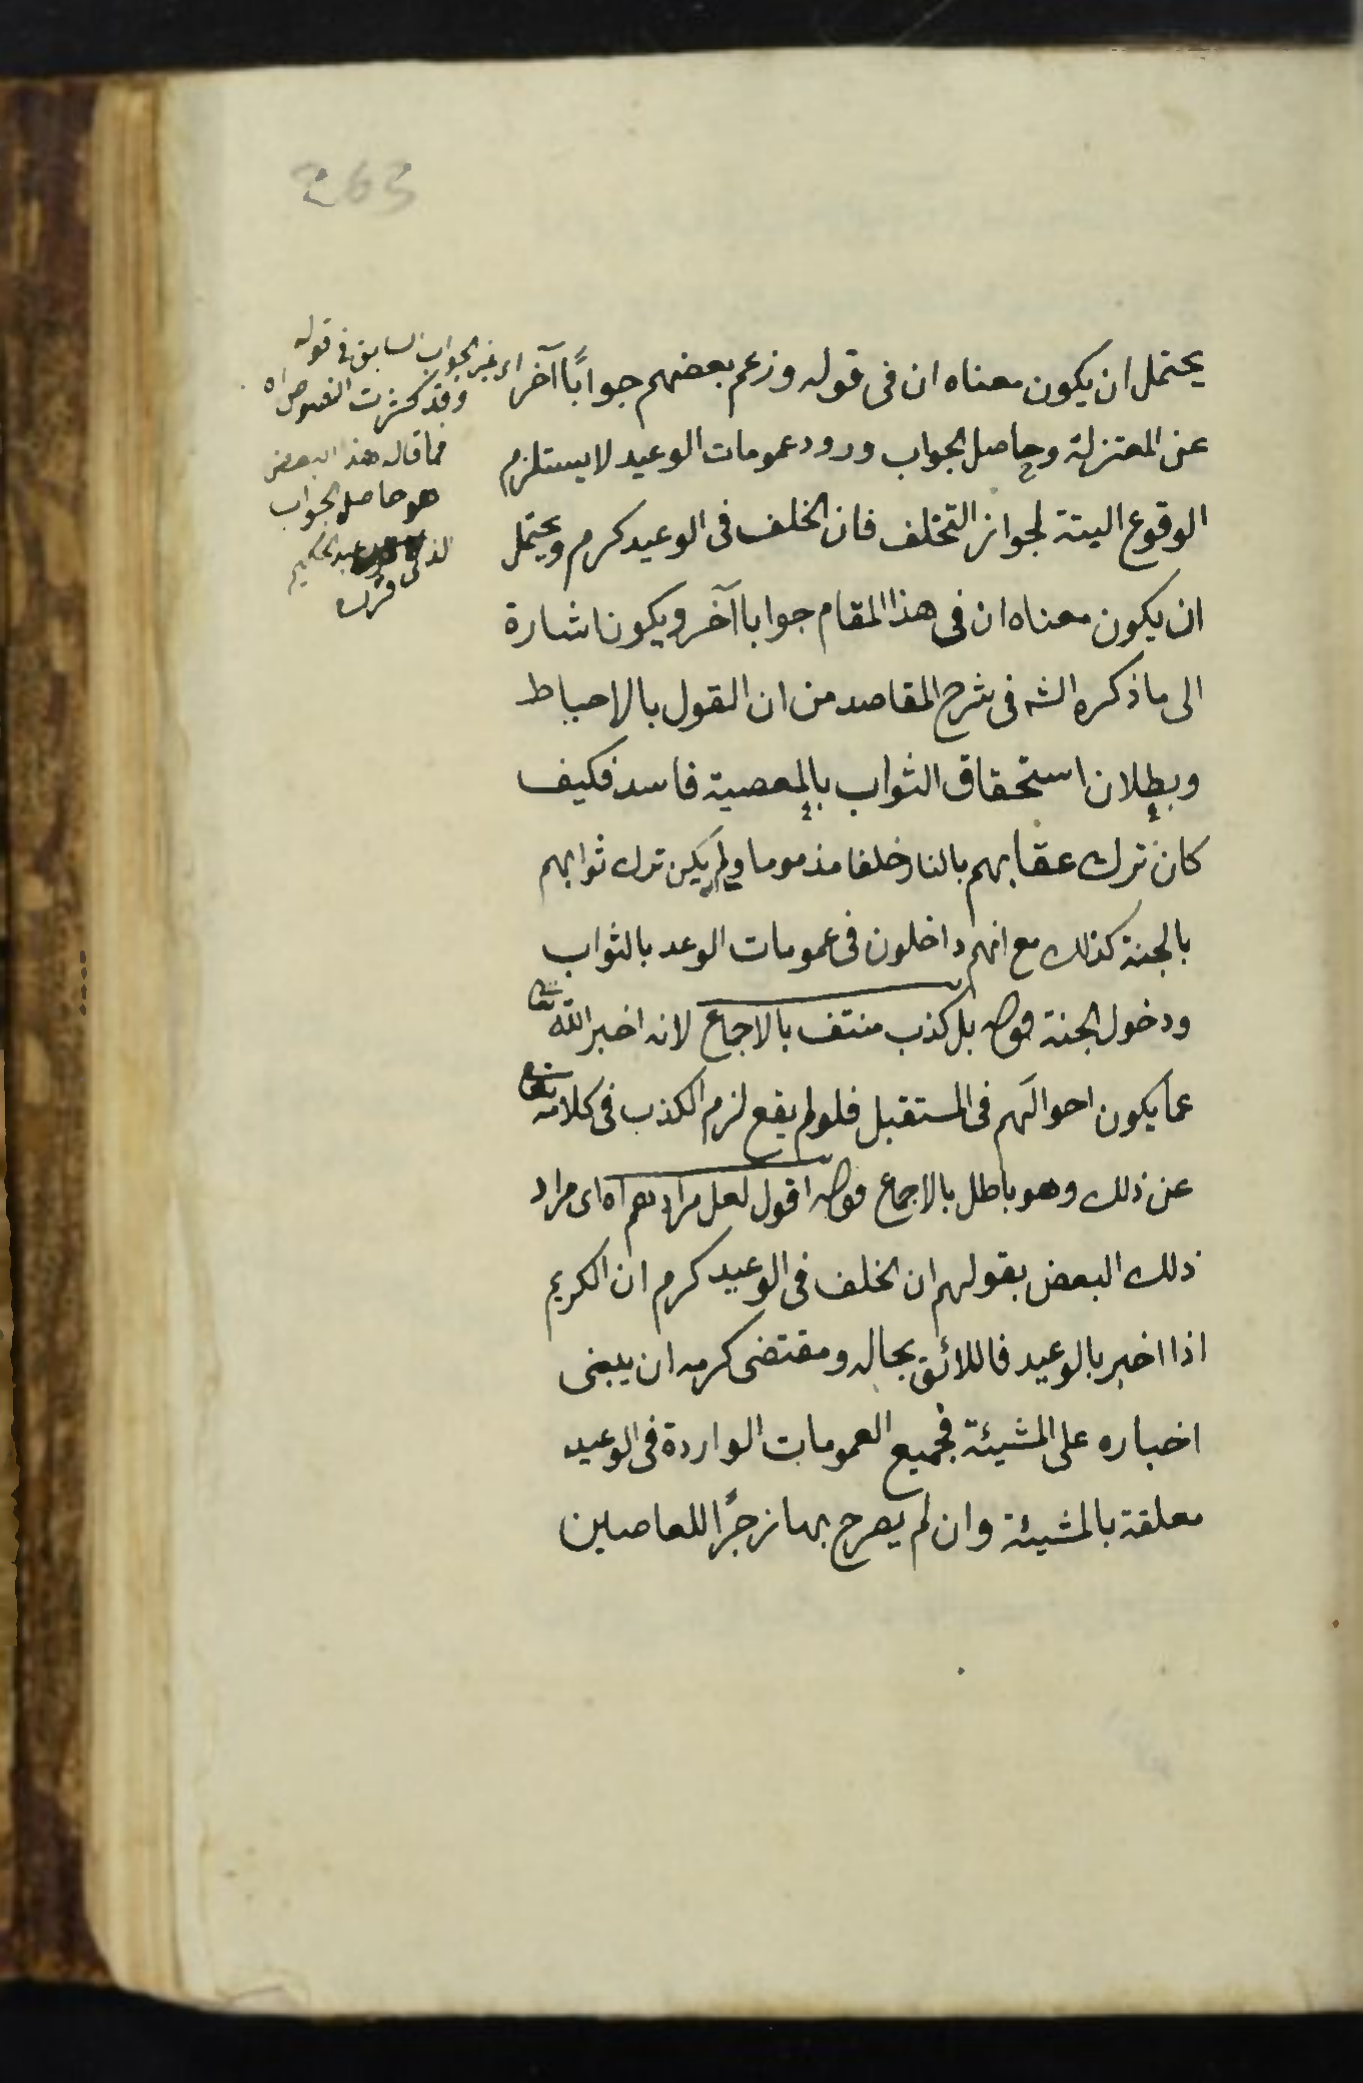 263
يحتمل ان يكون معناه ان فى قوله وزعم بعضهم جوابًا آخر
عن المعتزلة وحاصل الجواب ورود عمومات الوعيد لا يستلزم
الوقوع البتة لجواز التخلف فان الخلف فى الوعيد كرم ويحتمل
ان يكون معناه ان فى هذا المقام جوابا آخر ويكون اشارة
الى ما ذكره الشه فى شرح المقاصد من ان القول بالاحباط
وبطلان استحقاق الثواب بالمعصية فاسد فكيف
كان ترك عقابهم بالنار خلفا مذموما ولم يكن ترك ثوابهم
بالجنة كذلك مع انهم داخلون فى عمومات الوعد بالثواب
ودخول الجنة قوله بل كذب منتف بالاجماع لانه اخبر الله تعالى
عما يكون احوالهم فى المستقبل فلو لم يقع لزم الكذب فى كلامه تعالى
عن ذلك وهو باطل بالاجماع قوله اقول لعل مرادهم اه اى مراد
ذلك البعض بقولهم ان الخلف فى الوعيد كرم ان الكريم
اذا اخبر بالوعيد فاللائق بحاله ومقتضى كرمه ان يبنى
اخباره على المشيئة فجميع العمومات الواردة فى الوعيد
معلقة بالمشيئة وان لم يصرح بها زجرًا للعاصين
اى غير الجواب السابق فى قوله
وقد كثرت النصوص اه
فما قاله هذا البعض
هو حاصل الجواب
الذى عبد الحكيم